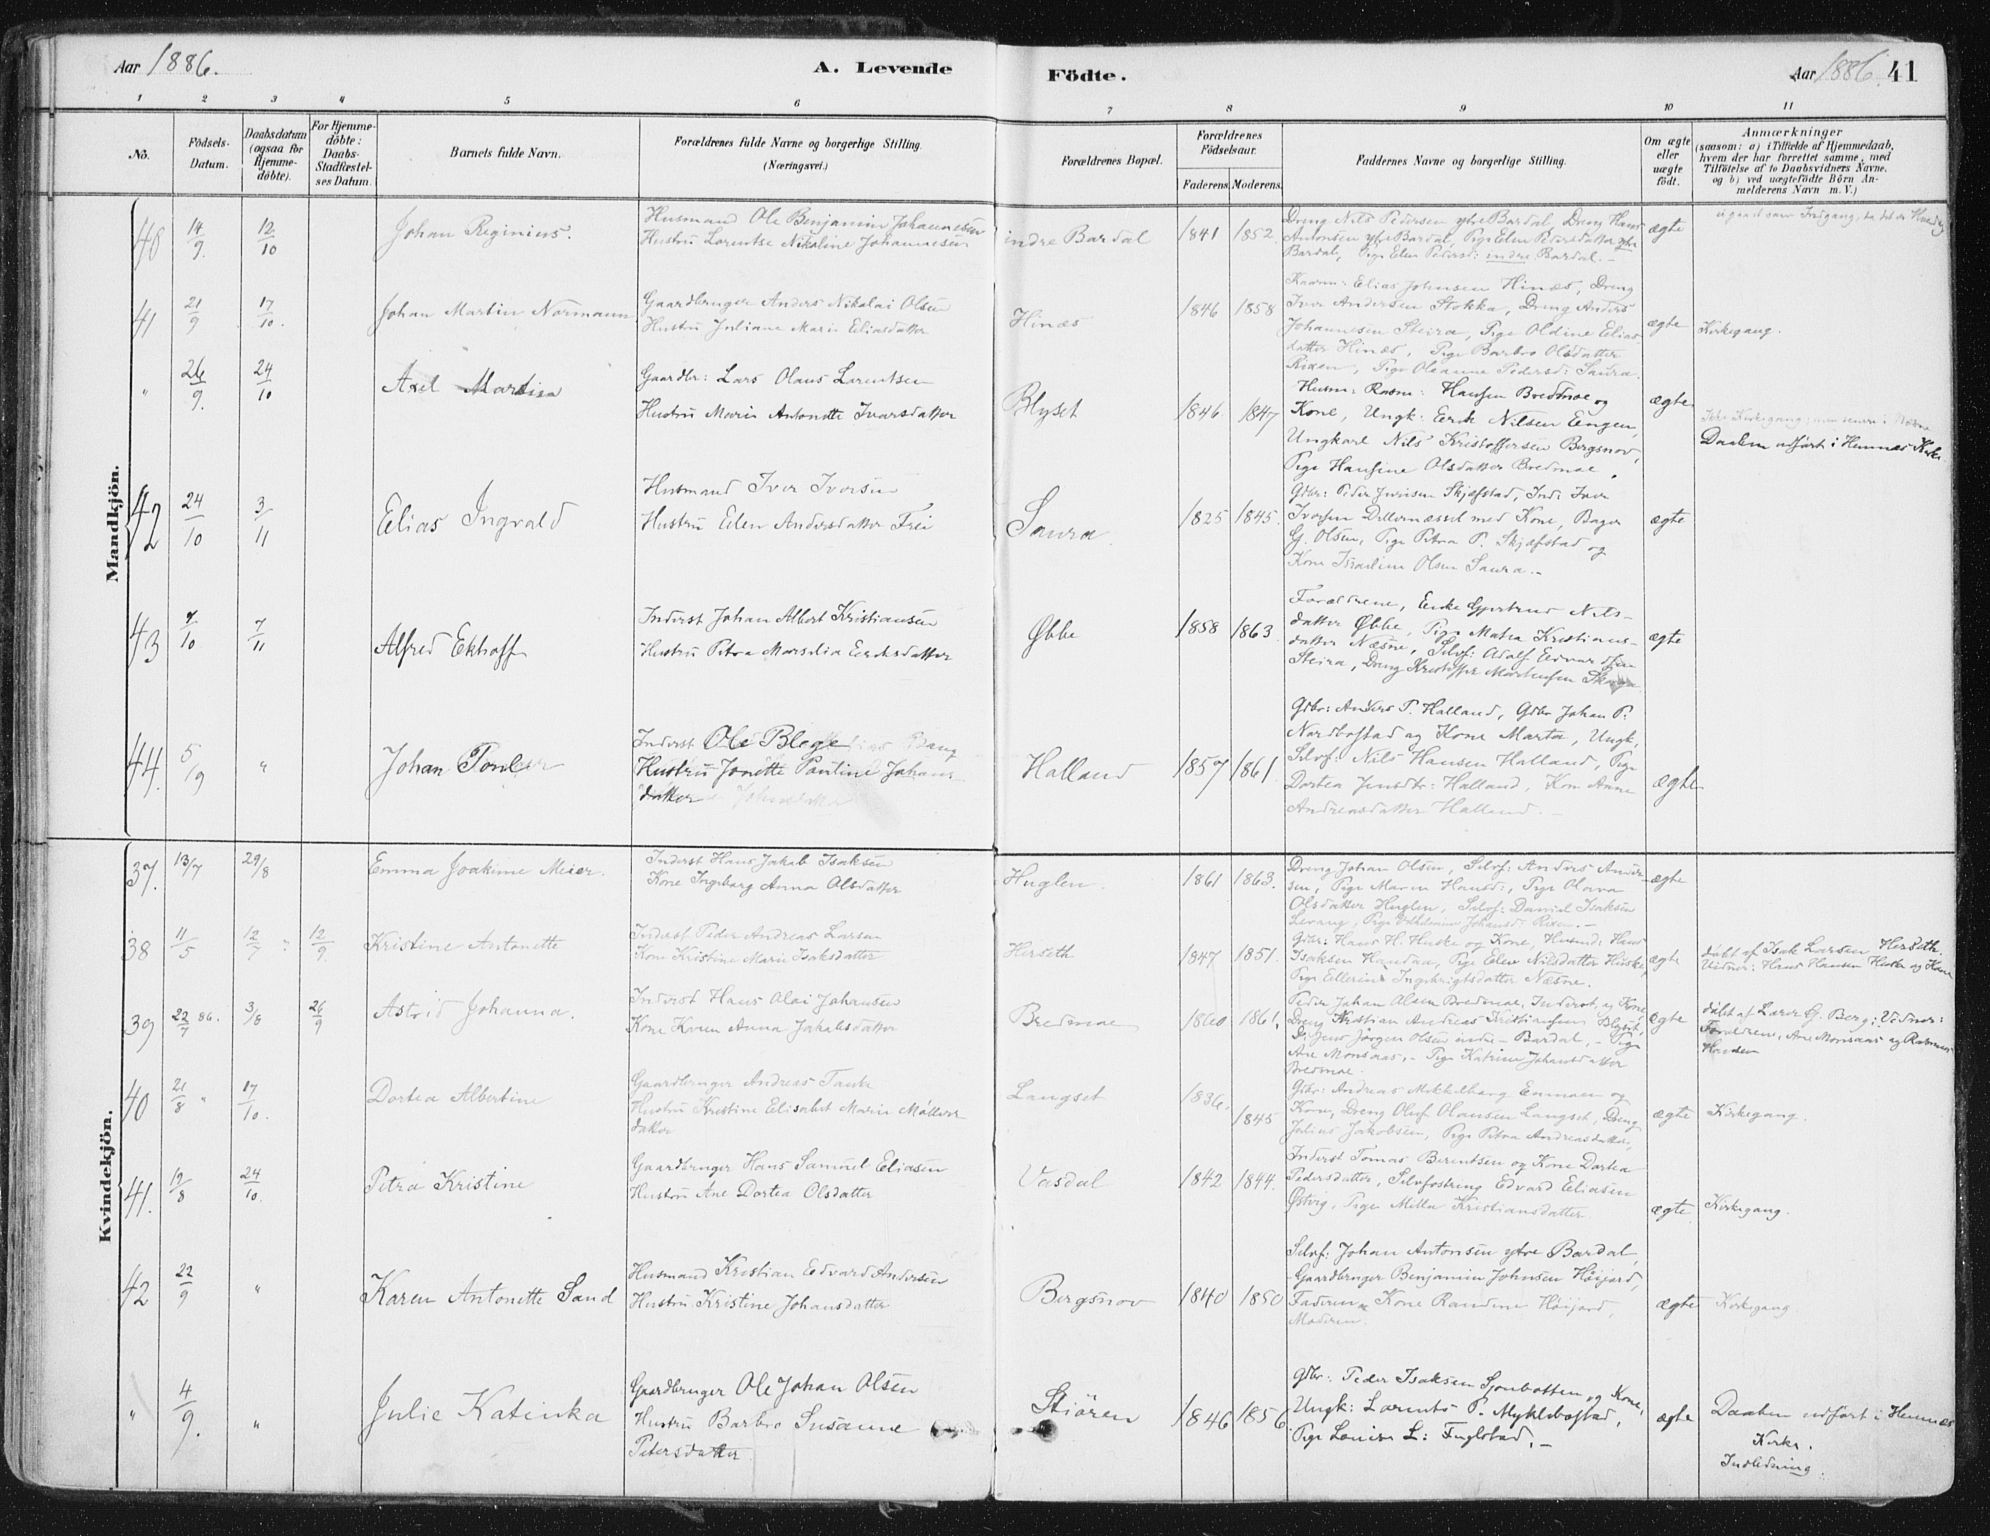 Aar 1886.
A. Levende
Födte.
Aar 1886. 41
1 2 3 4 5 6 7 8 9 10 11
No.
Födsels-Datum.
Daabsdatum (ogsaa for Hjemme-döbte).
For Hjemme-döbte: Daabs-Stadfæstel-ses Datum.
Barnets fulde Navn.
Forældrenes fulde Navne og borgerlige Stilling. (Næringsvei.)
Forældrenes Bopæl.
Forældrenes Födselsaar.
Faderens. Moderens.
Faddernes Navne og borgerlige Stilling.
Om ægte eller uægte födt.
Anmærkninger
(saasom: a) i Tilfælde af Hjemmedaab,
hvem der har forrettet samme, med
Tilföielse af to Daabsvidners Navne,
og b) ved uægtefödte Börn An-
melderens Navn m. V.)
Mandkjön.
40 14/9. 12/10 Johan Reginius.
Husmand Ole Benjamin Johannesen
Hustru Lorentse Nikoline Johannesen
indre Bardal 1841 1852.
Dreng Nils Pedersen ytre Bardal, Dreng Hans
Antonsen ytre Bardal, Pige Elen Pedersdatter ytre
Bardal, Pige Elen Pedersd: indre Bardal. –
ægte
41 21/9 17/10. Johan Martin Normann
Gaardbruger Anders Nikolai Olsen
Hustru Juliane Marie Eliasdatter
Hinæs 1846 1858
Elias Johnsen Hinæs, Dreng
Iver Andersen Stokka, Dreng Anders
Johannesen Steira, Pige Oldine Elias
datter Hinæs, Pige Barbro Olsdatter
Pige Oleanne Pedersd: Saura.
ægte Kirkegang.
" 26/9. 24/10 Axel Martin
Gaardbr: Lars Olaus Lorentsen
Hustru Marie Antonette Ivarsdatter
Blyset 1846 1847
Husm: Rasm: Hansen Bredmoe og
Kone, Ungk. Eerik Nilsen Eengen,
Ungkarl Nils Kristoffersen Bergsnov,
Pige Hansine Olsdatter Bredmoe,
ægte
Daaben udført i Hemnes Kirke.
42 24/10 3/11 Elias Ingvald
Husmand Iver Iversen
Hustru Elen Andersdatter Frei
Saura. 1825 1845.
Gdbr: Peder Skjæfstad, Ind: Iver
Iversen med Kone, Bager
G. Olsen, Pige Petra P. Skjæfstad og
Kone Olsen Saura. –
ægte
43 7/10 7/11 Alfred Ekhoff
Inderst Johan Albert Kristiansen
Hustru Petra Marselia Eeriksdatter
Øbbe 1858 1863.
Forældrene, Enke Gjertrud Nils-
datter Øbbe, Pige Matea Kristians-
datter Næsne, Selvf: Adolf Edvardsen
Steira, Dreng Kristoffer
ægte
44. 5/9 " Johan
Inderst Ole Blege
Hustru Jonette Pauline Johans
datter
Halland 1857 1861.
Gdbr: Anders P. Halland, Gdbr Johan P.
Nordbostad og Kone Marta, Ungk.
Selvf: Nils Hansen Halland, Pige
Dortea Jensdtr: Halland, Kone Anne
Andreasdatter Halland. –
ægte
Kvindekjön.
37. 13/7 29/8 Emma Joakime Meier.
Inderst Hans Jakob Isaksen
Kone Ingeborg Anna Olsdatter
Huglen. 1861 1863.
Dreng Johan Olsen, Selvf: Anders Ander-
sen, Pige Maren Hansd:, Pige Olava
Olsdatter Huglen, Selvf: Daniel Isaksen
Levang, Pige
ægte
38 11/5 12/7 " 12/9. Kristine Antonette
Inderst Peder Andreas Larsen
Kone Kristine Marie Isaksdatter
Herseth 1847 1851.
Gdbr: Hans H. Huske og Kone, Husmd: Hans
Isaksen Pige Elen Nilsdatter Huske,
Pige Ellerine Ingebrigtsdatter Næsne.
ægte
døbt af Isak Larsen Herseth.
Vidner: Hans Hansen Huske og Kone
39 22/7 86. 3/8 26/9 Astrid Johanna.
Inderst Hans Olai Johansen
Kone Karen Anna Jakobsdatter
Bredmoe 1860 1861.
Peder Johan Olsen Bredmoe, Inderst, og Kone,
Dreng Kristian Andreas Kristiansen Blyset,
Jens Jörgen Olsen nedre Bardal, – Pige
Ane Monsaas, – Pige Katrine Johansdatter
Bredmoe.
ægte
døbt af Lærer G. Berg; Vidner:
Forældrene, Ane Monsaas og Rasmus
Hansen
40 21/8 " 17/10. Dortea Albertine
Gaardbruger Andreas
Hustru Kristine Elisabet Marie Møllers
datter
Langset 1836. 1845
Gdbr: Andreas Mikkelborg Enmoen og
Kone, Dreng Oluf Olausen Langset, Dreng
Julius Jakobsen, Pige Petra Andreasdatter,
ægte Kirkegang.
41. 19/8 24/10. Petra Kristine
Gaardbruger Hans Samuel Eliasen
Hustru Ane Dortea Olsdatter
Vasdal 1842 1844.
Inderst Tomas Berentsen og Kone Dortea
Pedersdatter, Selvfostring Edvard Eliasen
Østvig, Pige Milla Kristiansdatter.
ægte. Kirkegang.
42 22/9 " Karen Antonette Sand
Husmand Kristian Edvard Andersen
Hustru Kristine Johansdatter
Bergsnov 1840 1850
Selvf: Johan Antonsen ytre Bardal,
Gaardbruger Benjamin Johnsen Höijord,
Faderen Kone Randine Höijord,
Moderen.
ægte Kirkegang
" 4/9. " Julie Katinka
Gaardbruger Ole Johan Olsen
Hustru Barbro Susanne
Petersdatter
Stiören 1846 1856.
Gdbr: Peder Isaksen Sjonbotten og Kone,
Ungk: Lorents P. Myklebostad,
Pige Louise L: Fuglstad. –
ægte
Daaben udført i Hemnes
Kirke.
Indledning.